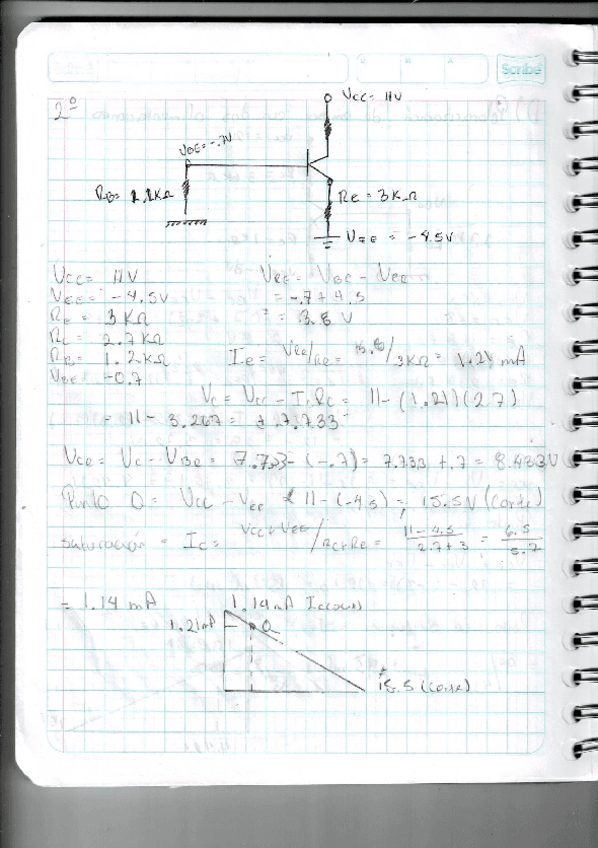 Scribe
2º
VCC= 11V
VBE= -.7V
RB= 1.2KΩ
RE = 3KΩ
VEE = -4.5V
VCC= 11V
VRE = VBE - VEE
VEE= -4.5V
= -.7 + 4.5
RE = 3KΩ
= 3.8 V
RC= 2.7KΩ
RB= 1.2KΩ
IE = VRE/RE = 3.8/3KΩ = 1.21 mA
VBE -0.7
VC = VCC - IcRC = 11-(1.21)(2.7)
= 11 - 3.267 = 7.733
VCE = VC - VBE = 7.733-(-.7)= 7.733 +.7 = 8.433V
Punto Q = VCC - VEE 11-(-4.5)= 15.5V (corte)
saturación = IC = VCC+VEE/RC+RE = 11-4.5/2.7+3 = 6.5/5.7
= 1.14 mA
1.14mA
1.21mA
Q
15.5 (corte)